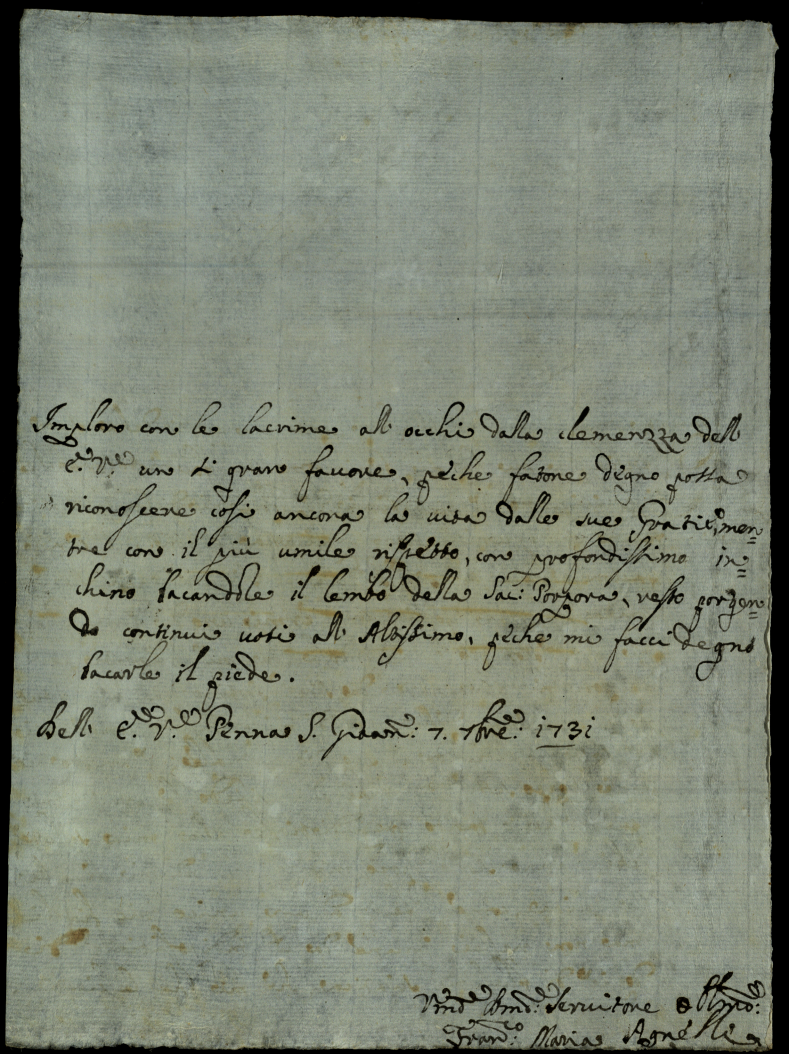 Imploro con le lacrime all occhi dalla clemenzza dell
E.V. un si gran favore, pche fatone degno possa
riconoscere cosi ancora la vita dalle sue Gratie, men=
tre con il più umile rispetto, con profondissimo in=
chino bacandole il lembo della Sac: Porpora, resto porgen=
do continui voti all Altissimo, pche mi facci degno
bacarle il piede.
Dell E.V. Penna S. Gioan: 7. 7bre: 1731
Servitore
Fran: Maria Agnelli